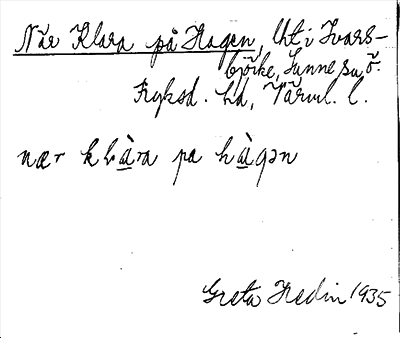 När Klara på Hagen, Uti Ivars-
björke, Sunne su ő.
Fryksd. hd, Värml. l.
nær klàra pa hàgən
Greta Hedin 1935